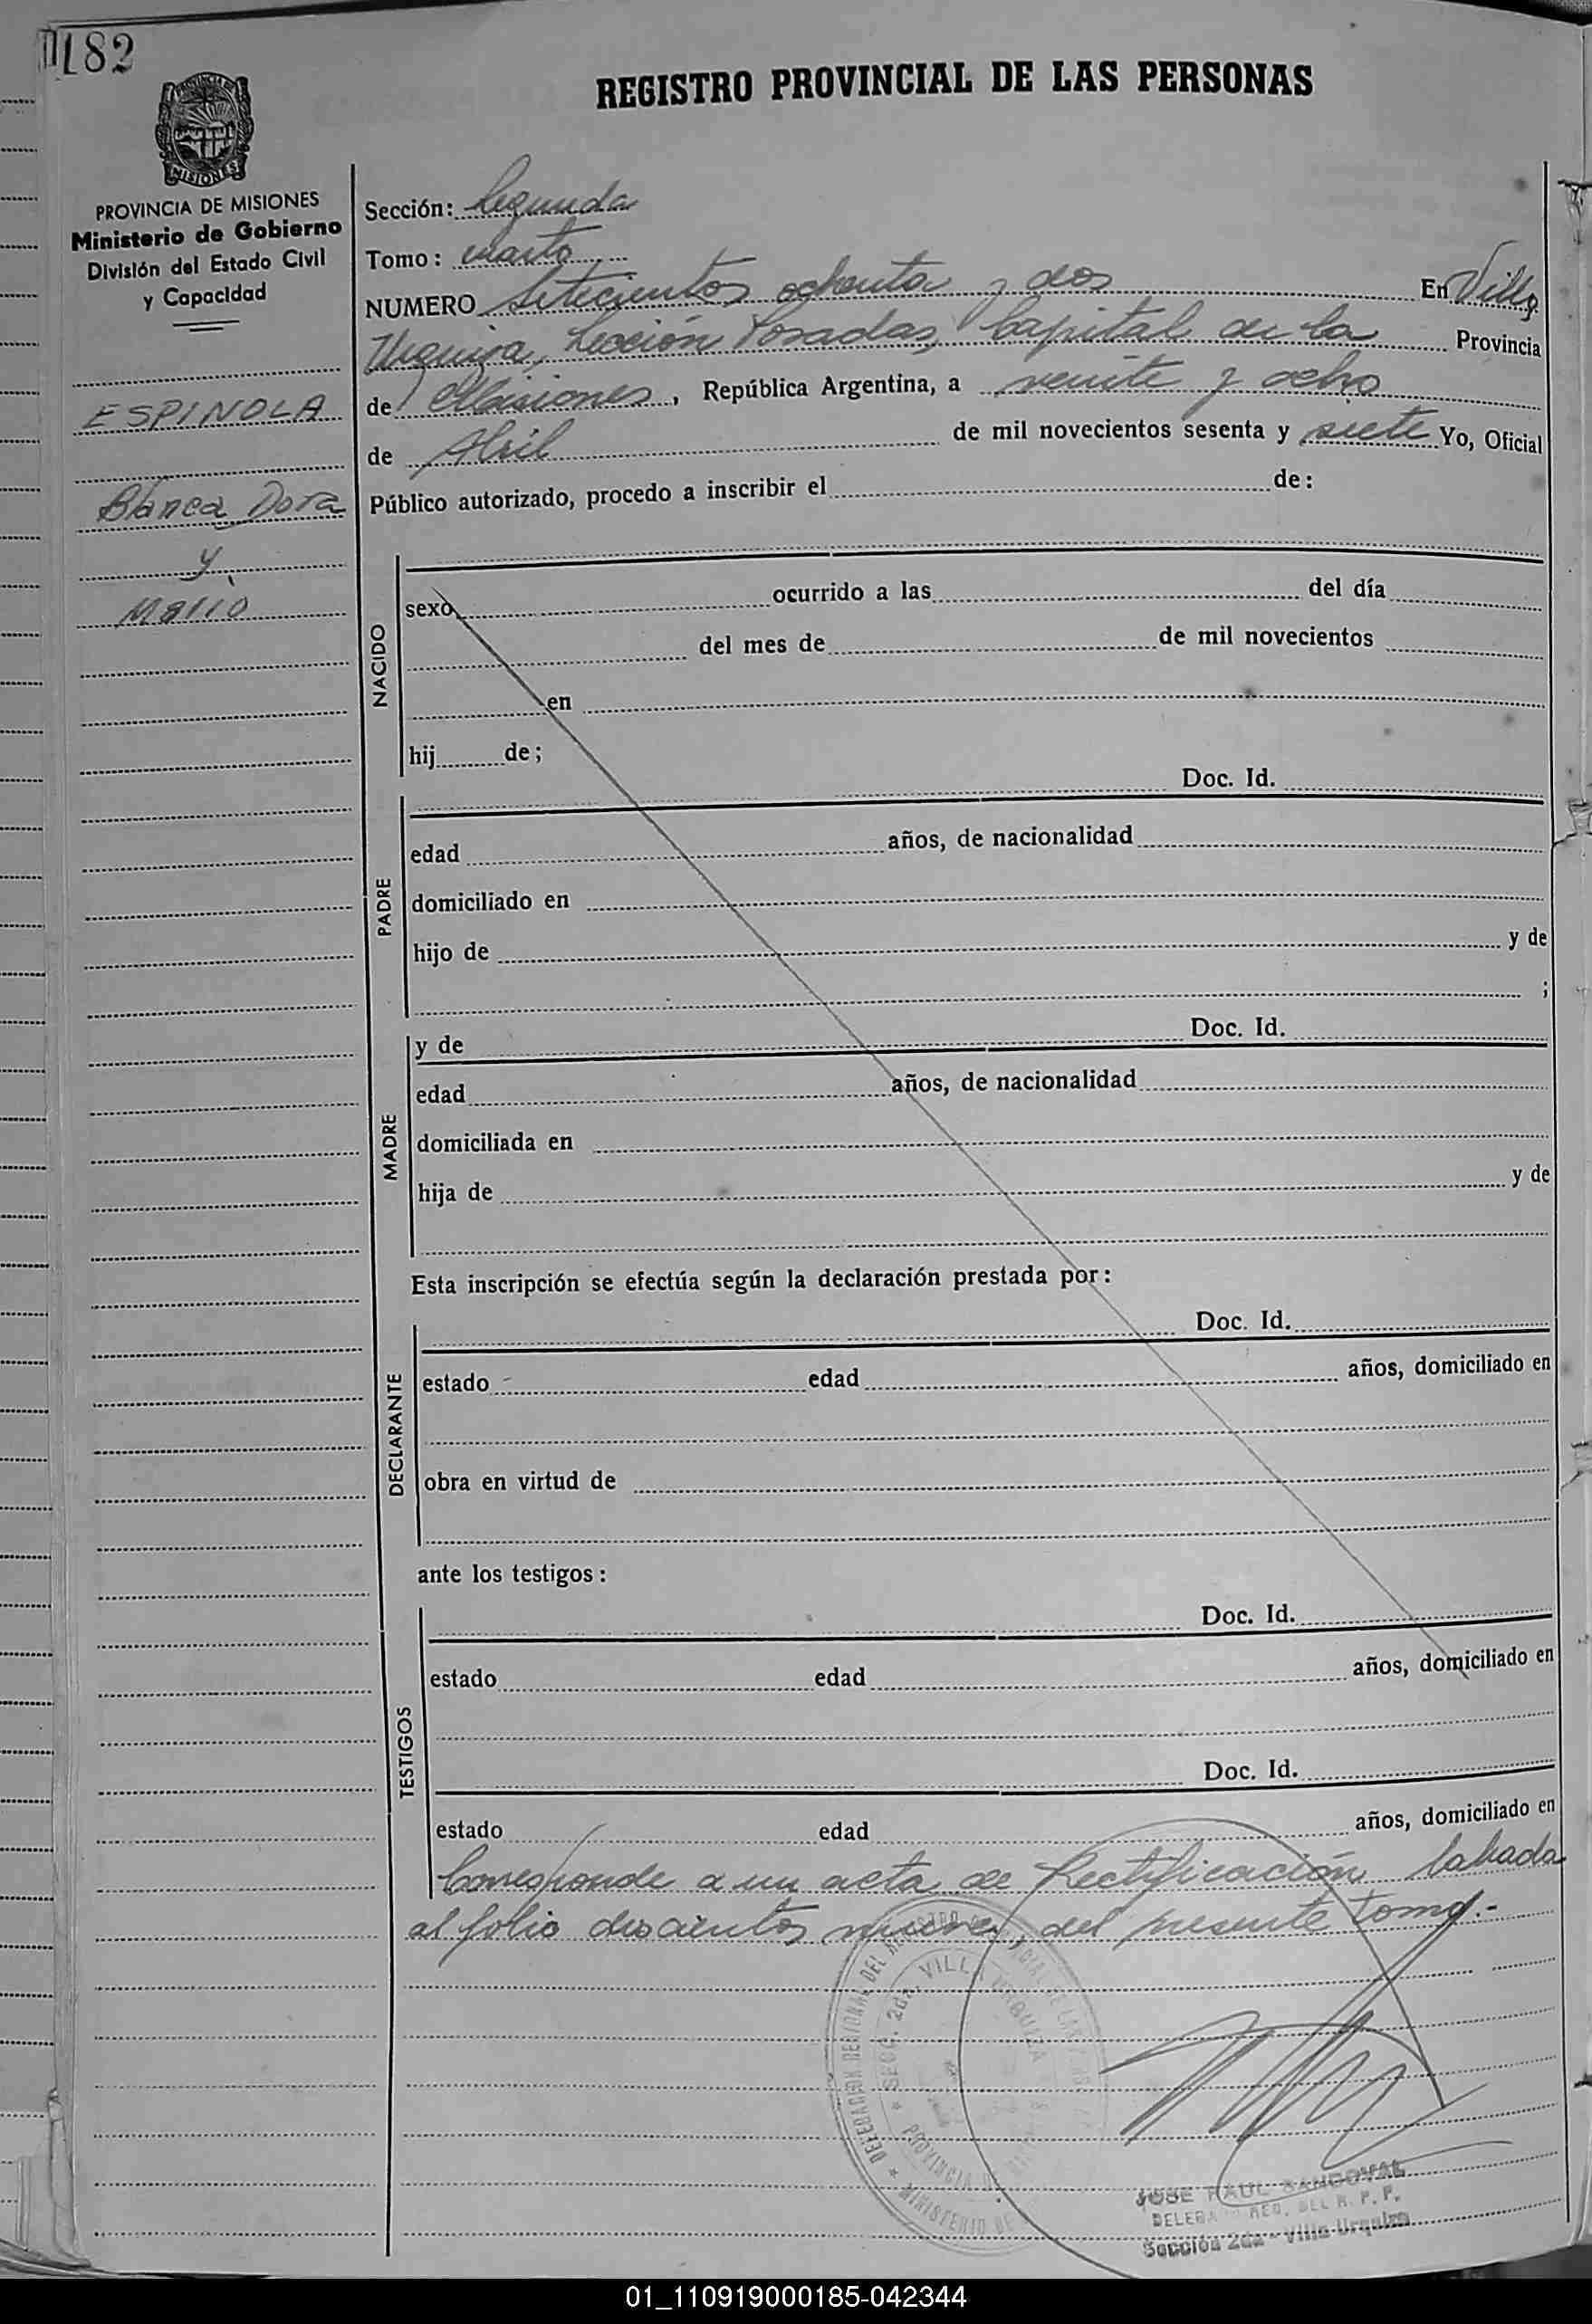 182
REGISTRO PROVINCIAL DE LAS PERSONAS
PROVINCIA DE MISIONES
MISIONES
PROVINCIA DE MISIONES
Ministerio de Gobierno
División del Estado Civil
y Capacidad
ESPINOLA
Blanca Dora
y
Mario
Sección: Segunda
Tomo: cuarto
NUMERO Setecientos ochenta y dos En Villa
Urquiza, Sección Posadas, Capital de la Provincia
de Misiones, República Argentina, a veinte y ocho
de Abril de mil novecientos sesenta y siete Yo, Oficial
Público autorizado, procedo a inscribir el de:
NACIDO
sexo ocurrido a las del día
del mes de de mil novecientos
en
hij de;
PADRE
Doc. Id.
edad años, de nacionalidad
domiciliado en
hijo de y de
;
MADRE
y de Doc. Id.
edad años, de nacionalidad
domiciliada en
hija de y de
Esta inscripción se efectúa según la declaración prestada por:
DECLARANTE
Doc. Id.
estado edad años, domiciliado en
obra en virtud de
ante los testigos:
TESTIGOS
Doc. Id.
estado edad años, domiciliado en
Doc. Id.
estado edad años, domiciliado en
Corresponde a un acta de Rectificación labada
al folio doscientos nueve, del presente Tomo.-
DELEGACION REGIONAL DEL REGISTRO
SECC. 2da. VILLA URQUIZA
PROVINCIA DE
MINISTERIO DE
JOSE RAUL SANDOVAL
REG. DEL R. P. P.
Sección 2da - Villa Urquiza
01_110919000185-042344